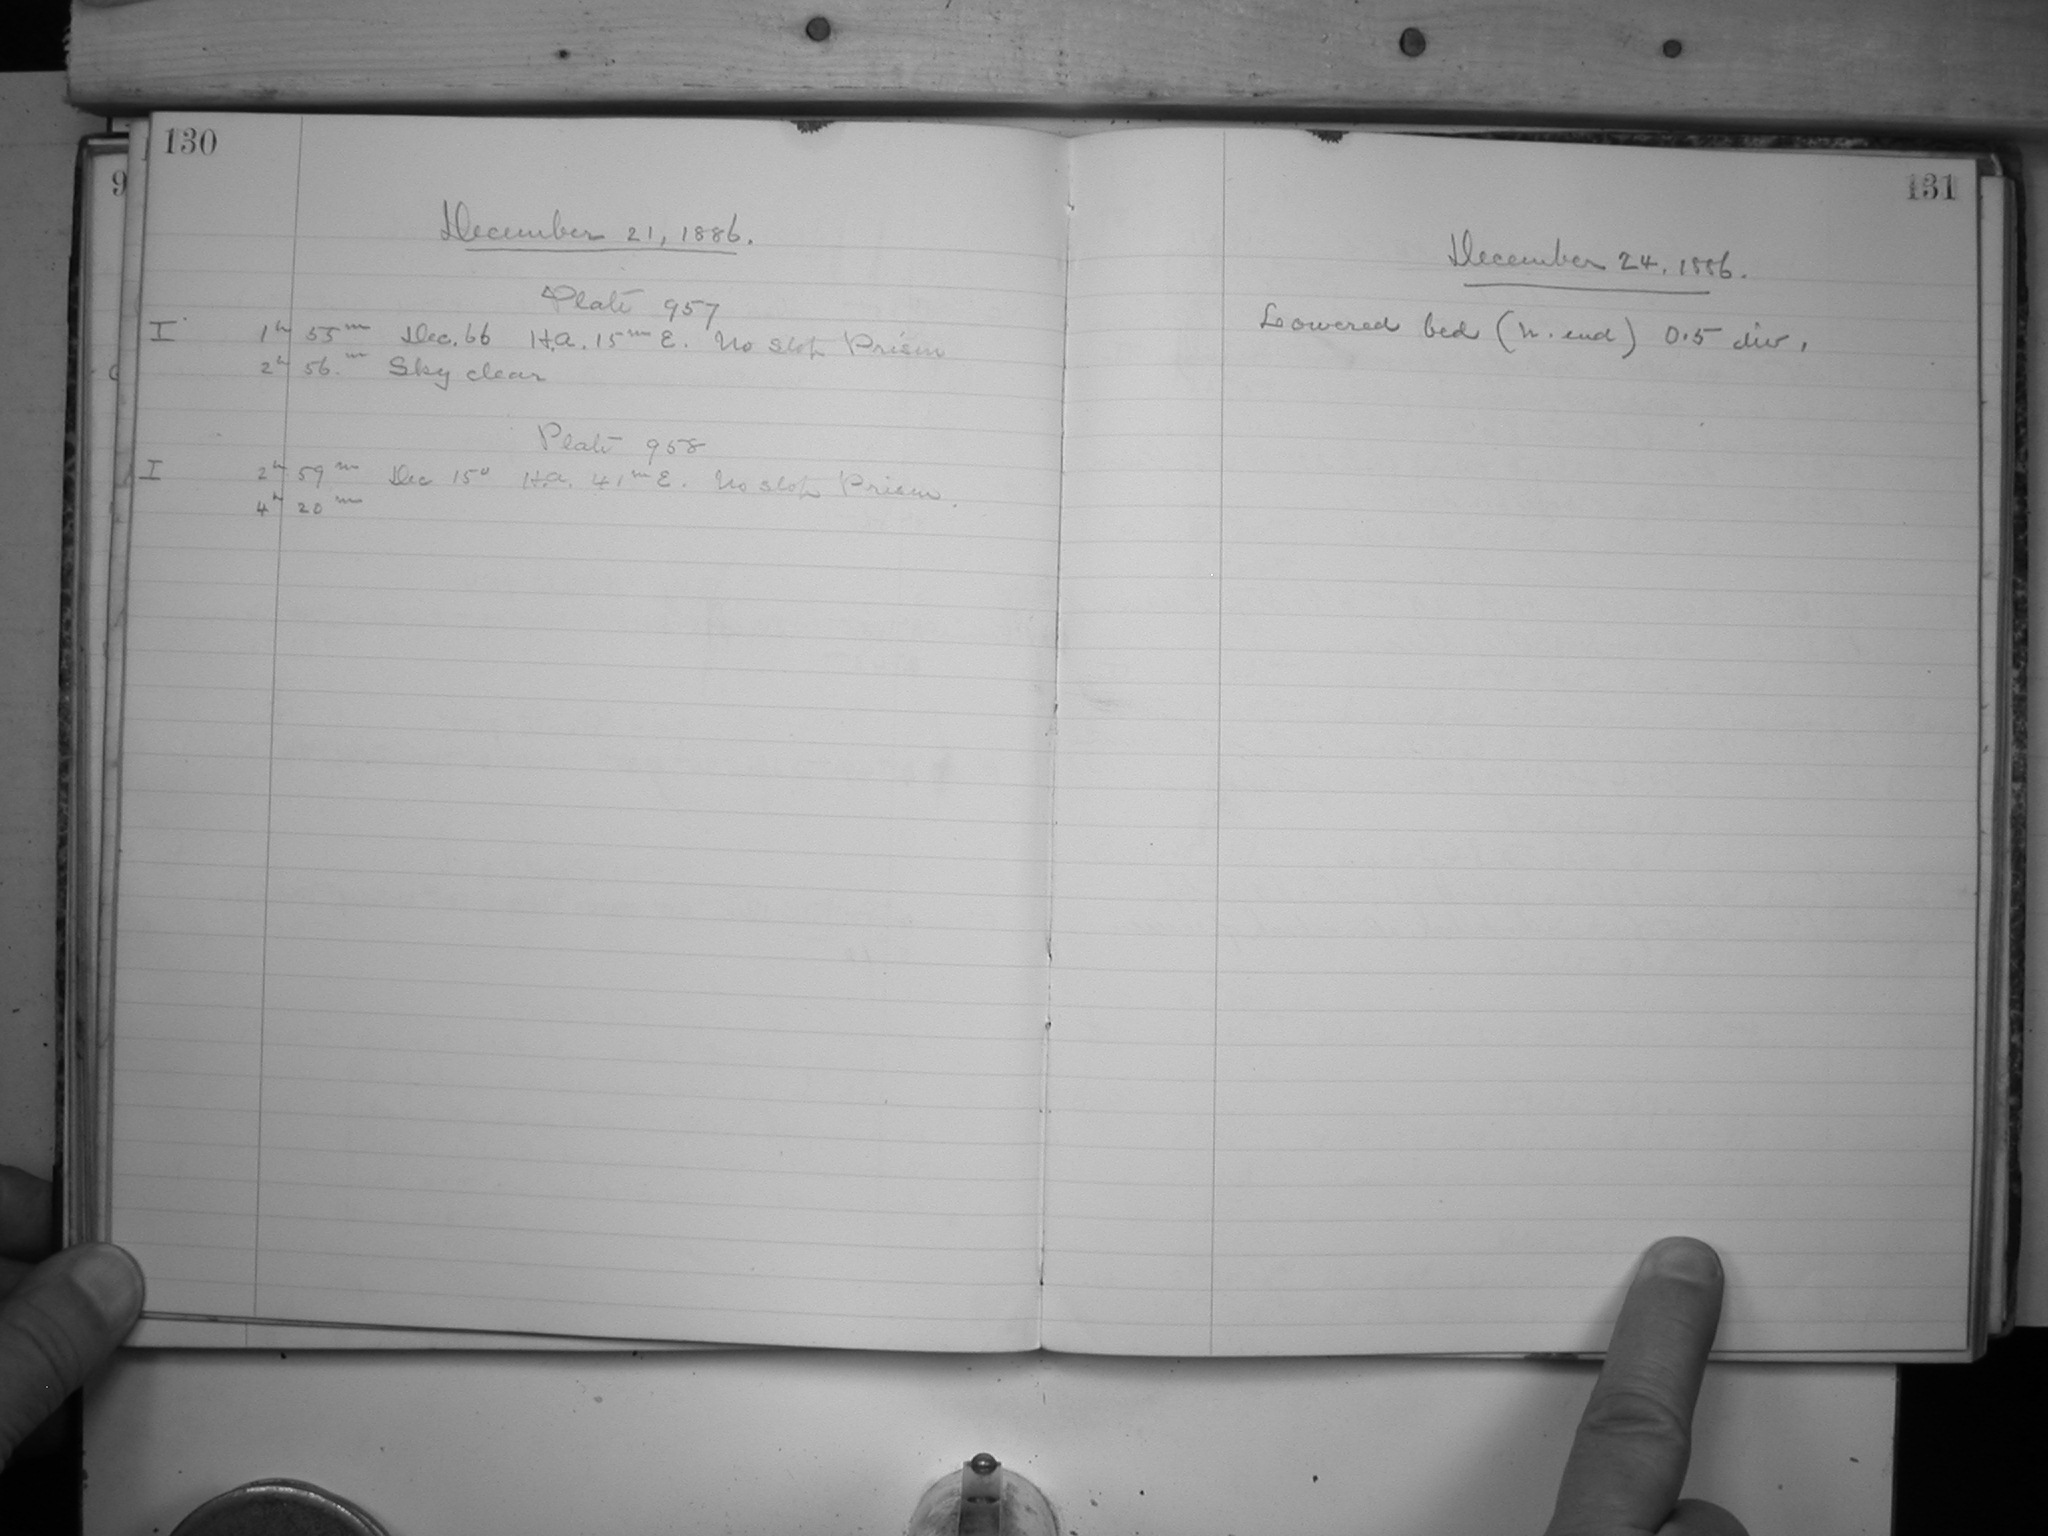 130
December 21, 1886.
Plate 957
I 1h 55m Dec. 66 H.A. 15m E. No stop Prism
2h 56m Sky clear
Plate 958
I 2h 59m Dec 15° H.A. 41m E. No stop Prism.
4h 20m
131
December 24, 1886.
Lowered bed (N. end) 0.5 div.
9